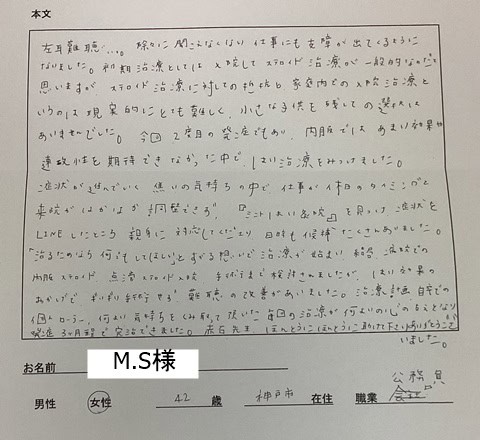 本文
左耳難聴…。徐々に聞こえなくなり 仕事にも支障が出てくるように
なりました。初期治療としては入院して ステロイド 治療が一般的なのだと
思いますが ステロイド治療に対しての抵抗と家庭内での入院治療と
いうのは現実的にとても難しく、小さな子供を残しての選択は
ありませんでした。今回 2度目の発症でもあり、内服では あまり効果や
速効性を期待できなかった中で、はり治療をみつけました。
症状が進んでいく 焦りの気持ちの中で、仕事が休日のタイミングと
来院がなかなか調整できず、『ミントはり灸院』を見つけ 症状を
LINEしたところ 親身に対応してくださり 日時も候補 たくさんありました。
「治るためなら 何でもしてほしい」とすがる思いで治療が始まり 結局、病院での
内服ステロイド 点滴ステロイド 入院 手術まで検討されましたが、はり効果の
おかげで ギリギリ手術せず 難聴の改善がありました。治療計画 自宅での
何より気持ちをくみ取って頂いた毎回の治療が何より心の支えとなり
発症3ヶ月程で完治できました。 先生、ほんとうにほんとうに助けて下さりありがとうござ
いました。
お名前 M.S様
公務員
男性 女性 42 歳 神戸市 在住 職業 会社